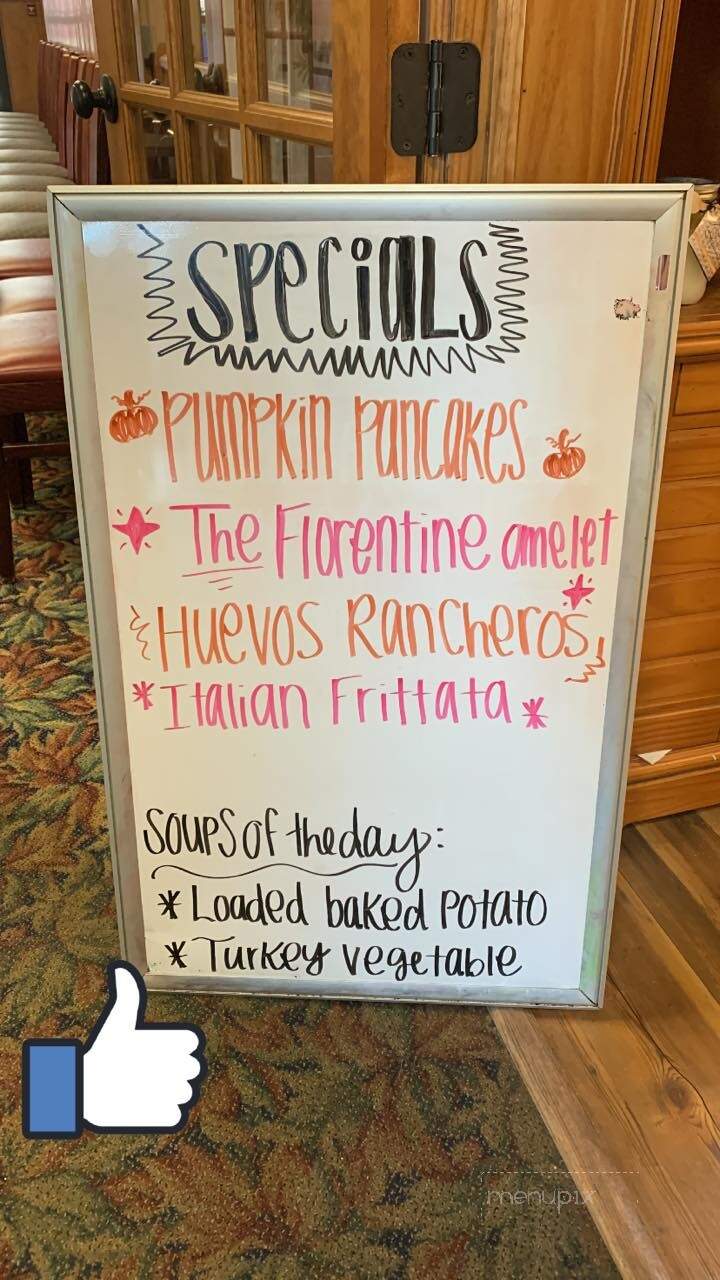 SPeciaLS
PUMPKIN PanCaKES
The Florentine omelet
HUEVOS RanCheros
Italian Frittata
SOUPS OF the day:
* Loaded baked Potato
* Turkey vegetable
menupix